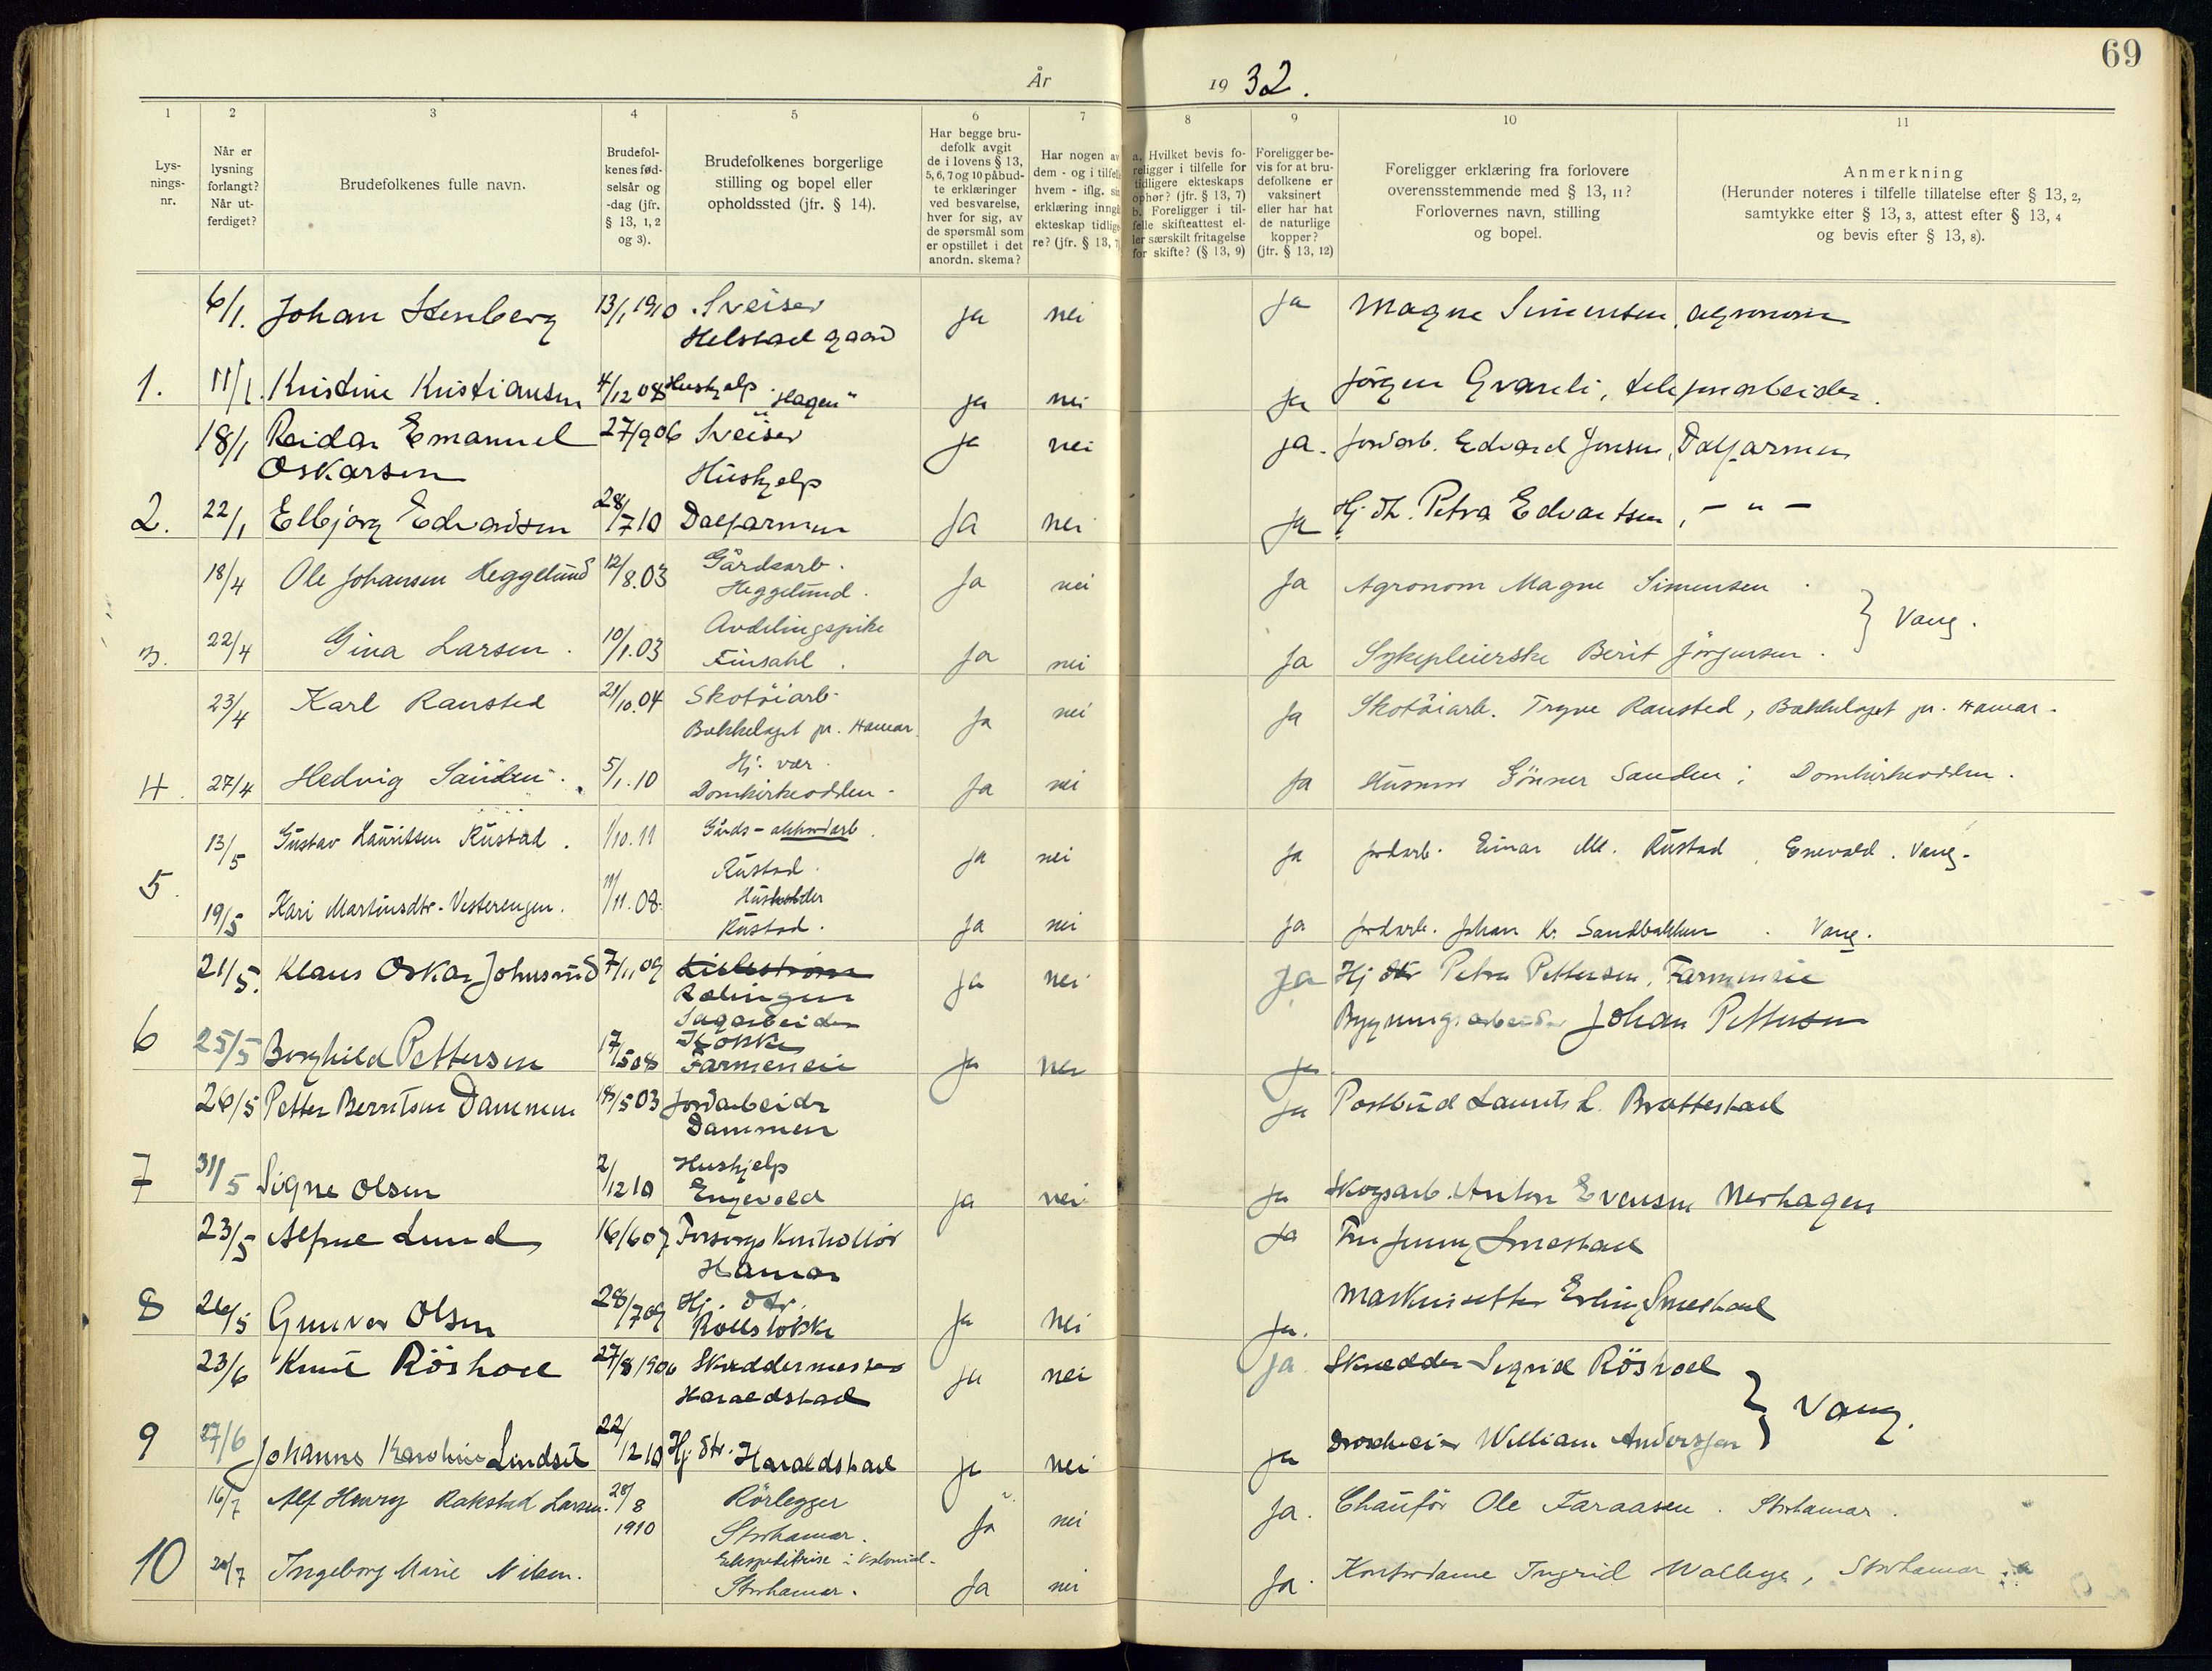 69
År 1932.
1 2 3 4 5 6 7 8 9 10 11
Lysningsnr.
Når er lysning forlangt? Når utferdiget?
Brudefolkenes fulle navn.
Brudefolkenes fødselsår og -dag (jfr. § 13, 1, 2 og 3).
Brudefolkenes borgerlige stilling og bopel eller opholdssted (jfr. § 14).
Har begge brudefolk avgit de i lovens § 13, 5, 6, 7 og 10 påbudte erklæringer ved besvarelse, hver for sig, av de spørsmål som er opstillet i det anordn. skema?
Har nogen av dem - og i tilfelle hvem - iflg. sin erklæring inngå ekteskap tidligere? (jfr. § 13, 7
a. Hvilket bevis foreligger i tilfelle for tidligere ekteskaps ophør? (jfr. § 13, 7) b. Foreligger i tilfelle skifteattest eller særskilt fritagelse for skifte? (§ 13, 9)
Foreligger bevis for at brudefolkene er vaksinert eller har hat de naturlige kopper? (jfr. § 13, 12)
Foreligger erklæring fra forlovere overensstemmende med § 13, 11? Forlovernes navn, stilling og bopel.
Anmerkning (Herunder noteres i tilfelle tillatelse efter § 13, 2, samtykke efter § 13, 3, attest efter § 13, 4 og bevis efter § 13, 8).
6/1. Johan Stenberg 13/1 1910 Sveiser ja nei ja Magne Simensen, agronom
Helstad gaard
1. 11/1. Kristine Kristiansen 4/12 08 Hushjelp "Hagen" ja nei ja Jørgen Gvareli, telefonarbeider.
18/1 Reidar Emanuel 27/9 06 Sveiser ja nei ja. Jordarb. Edvard Jensen, Dalfarmen
Oskarsen Hushjelp
2. 22/1 Elbjørg Edvardsen 28/7 10 Dalfarmen ja nei ja Hj. dtr. Petra Edvartsen, - " -
18/4 Ole Johansen Heggelund 12/8.03 Gårdsarb. Ja nei Ja Agronom Magne Simensen
Heggelund.
3. 22/4 Gina Larsen. 10/1.03 Avdelingspike Ja nei Ja Sykepleierske Berit Jörgensen. } Vang.
Finsahl.
23/4 Karl Ransted 21/10.04 Skotöiarb. Ja nei Ja Skotöiarb. Trygve Ransted, Bakkelaget pr. Hamar.
Bakkelaget pr. Hamar.
4. 27/4 Hedvig Sanden. 5/1.10 Hj. vær. Ja nei Ja Husmor Gönner Sanden; Domkirkeodden.
Domkirkeodden.
13/5 Gustav Lauritsen Rustad. 1/10.11 Gårds-akkordarb. Ja nei Ja Jordarb. Einar M. Rustad, Enevald. Vang.
Rustad.
5. 19/5 Kari Martinsdtr. Vesterengen. 11/11.08. Husholder Ja nei Ja Jordarb. Johan Kr. Sandbakken. Vang.
Rustad.
21/5. Klaus Oskar Johnsrud 7/11 09 Lilleström Ja nei Ja Hj dtr Petra Pettersen, Farmeneie
Rælingen
Sagarbeider
6 25/5 Borghild Pettersen 17/5 08 Kokke Ja nei Ja Bygningsarbeider Johan Pettersen
Farmeneie
26/5 Petter Berntsen Dammen 18/5 03 Jordarbeider ja Postbud Laurits L. Brattestad
Dammen
7 31/5 Signe Olsen 2/12 10 Hushjelp ja nei ja Skogsarb. Anton Evensen Nerhagen
Engevold
23/5 Alfred Lund 16/6 07 Kontrollör ja Fru Jenny Smestad
Hamar
8 26/5 Gunvor Olsen 28/7 09 Hj. dtr. ja nei ja. Maskinsetter Erling Smestad
Rollsløkke
23/6 Knut Röshol 27/8 1906 Skreddermester ja nei ja Skredder Sigrid Röshol
Haraldstad
9 27/6 Johanne Karoline Lindset 22/12 10 Hj dtr. Haraldstad ja nei ja William Anderssen } Vang.
16/7 Alf Henry Rakstad Larsen. 28/8 1910 Rörlegger Ja nei Ja. Chauför Ole Faraasen. Storhamar.
Storhamar.
10 20/7 Ingeborg Marie Nilsen. Ekspeditrise i kolonial. Ja nei Ja. Kontordame Ingrid Wallbye, Storhamar
Storhamar.